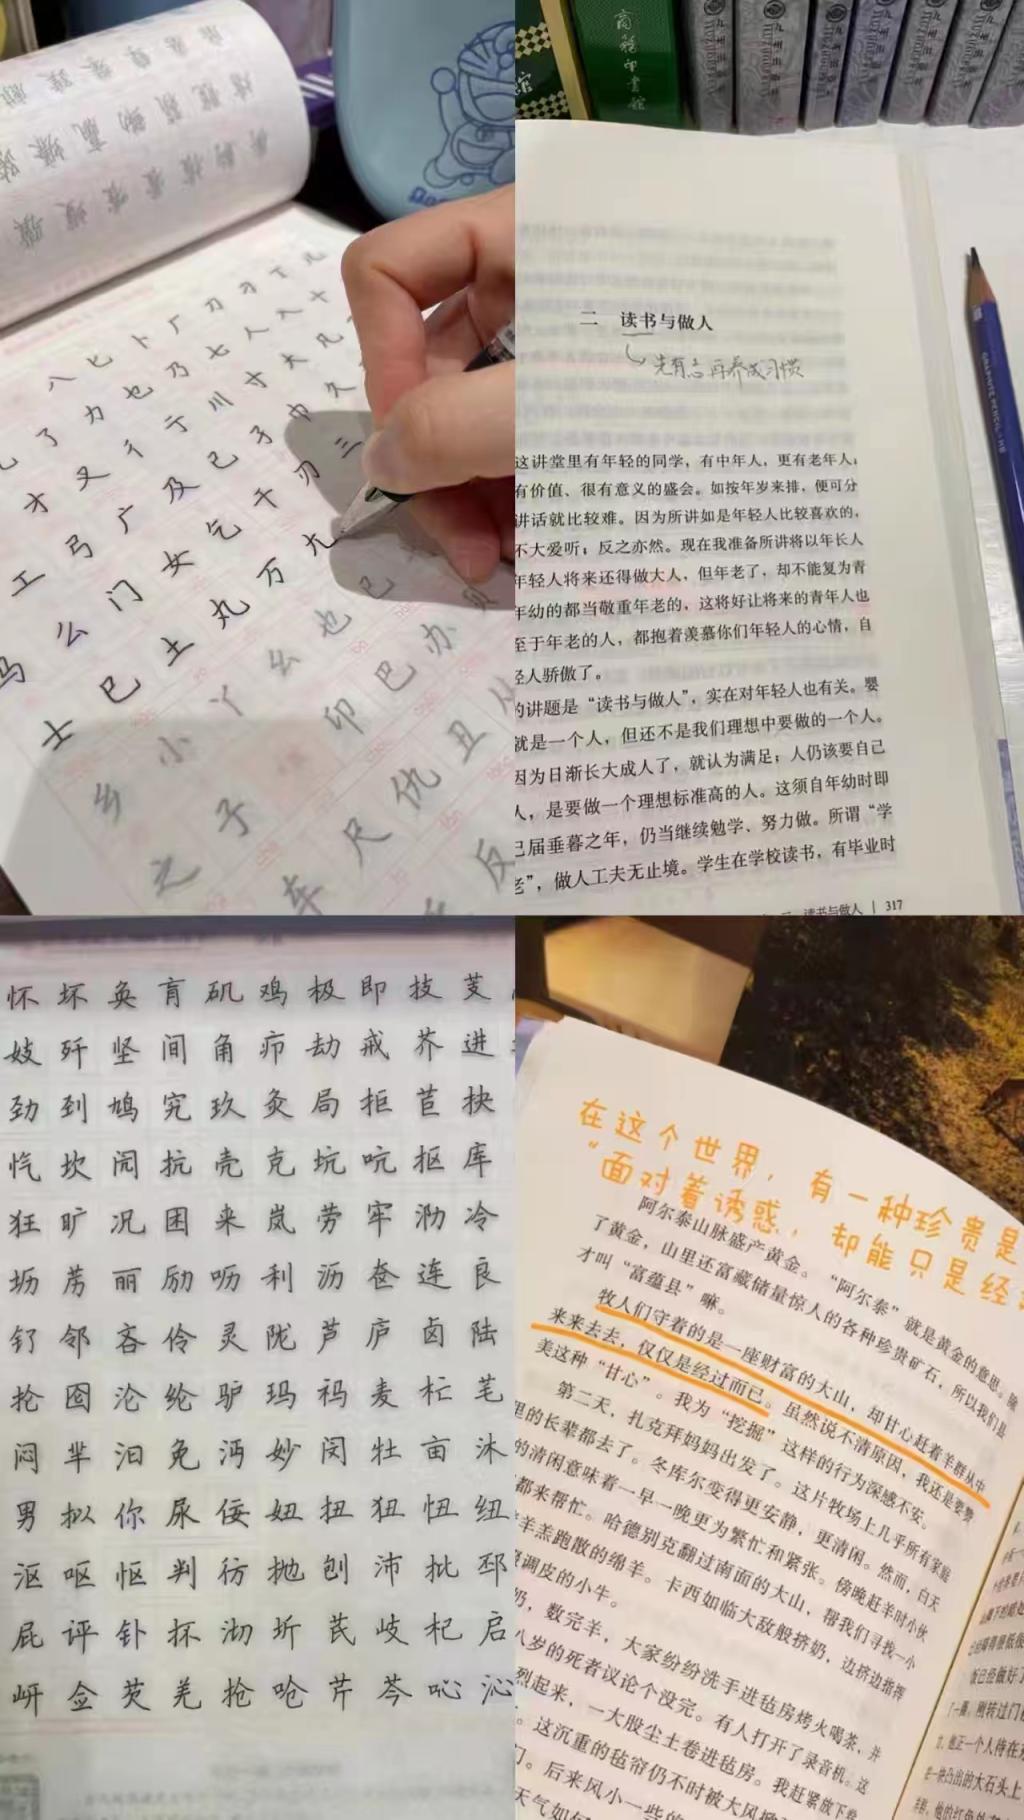 八 匕 卜 厂 刀 刁 丁 儿
了 力 也 乃 七 人 入 十
才 又 彳 亍 川 寸 大 凡
工 弓 广 及 已 孑 巾 久
马 么 门 女 乞 千 刃 三
士 巳 土 丸 万 九
乡 小 丫 幺 也 已
之 子 卯 巴 办
车 尺 仇 丑
反
商务印书馆
九州出版社
九州出版社
九州出版社
九州出版社
GRAPHITE PENCIL·HB
二 读书与做人
先有志再养成习惯
这讲堂里有年轻的同学，有中年人，更有老年人；
有价值、很有意义的盛会。如按年岁来排，便可分
讲话就比较难。因为所讲如是年轻人比较喜欢的，
不大爱听；反之亦然。现在我准备所讲将以年长人
年轻人将来还得做大人，但年老了，却不能复为青
年幼的都当敬重年老的，这将好让将来的青年人也
至于年老的人，都抱着羡慕你们年轻人的心情，自
轻人骄傲了。
的讲题是“读书与做人”，实在对年轻人也有关。婴
就是一个人，但还不是我们理想中要做的一个人。
因为日渐长大成人了，就认为满足；人仍该要自己
人，是要做一个理想标准高的人。这须自年幼时即
已届垂暮之年，仍当继续勉学、努力做。所谓“学
老”，做人工夫无止境。学生在学校读书，有毕业时
读书与做人 | 317
怀 坏 奂 肓 矶 鸡 极 即 技 芰
妓 歼 坚 间 角 疖 劫 戒 芥 进
劲 到 鸠 究 玖 灸 局 拒 苣 抉
忾 坎 闶 抗 壳 克 坑 吭 抠 库
狂 旷 况 困 来 岚 劳 牢 泐 冷
坜 苈 丽 励 呖 利 沥 奁 连 良
钌 邻 吝 伶 灵 陇 芦 庐 卤 陆
抡 囵 沦 纶 驴 玛 祃 麦 杧 芼
闷 芈 汨 免 沔 妙 闵 牡 亩 沐
男 拟 你 尿 佞 妞 扭 狃 忸 纽
沤 呕 怄 判 彷 抛 刨 沛 批 邳
屁 评 钋 抔 沏 圻 芪 岐 杞 启
岍 佥 芡 羌 抢 呛 芹 芩 吣 沁
在这个世界，有一种珍贵是
“面对着诱惑，却能只是经
阿尔泰山脉盛产黄金。“阿尔泰”就是黄金的意思。除
了黄金，山里还富藏储量惊人的各种珍贵矿石，所以我们县
才叫“富蕴县”嘛。
牧人们守着的是一座财富的大山，却甘心赶着羊群从中
来来去去，仅仅是经过而已。虽然说不清原因，我还是要赞
美这种“甘心”。我为“挖掘”这样的行为深感不安。
第二天，扎克拜妈妈出发了。这片牧场上几乎所有家庭
里的长辈都去了。冬库尔变得更安静，更清闲。然而，白天
的清闲意味着一早一晚更为繁忙和紧张。傍晚赶羊时小伙
都来帮忙。哈德别克翻过南面的大山，帮我们寻找一小
羊羔跑散的绵羊。卡西如临大敌般挤奶，边挤边指挥
调皮的小牛。
奶，数完羊，大家纷纷洗手进毡房烤火喝茶，并
八岁的死者议论个没完。有人打开了录音机。这
烈起来，一大股尘土卷进毡房。我赶紧放下卷
。这沉重的毡帘仍不时被大风掀
门。后来风小一些的
天气如何